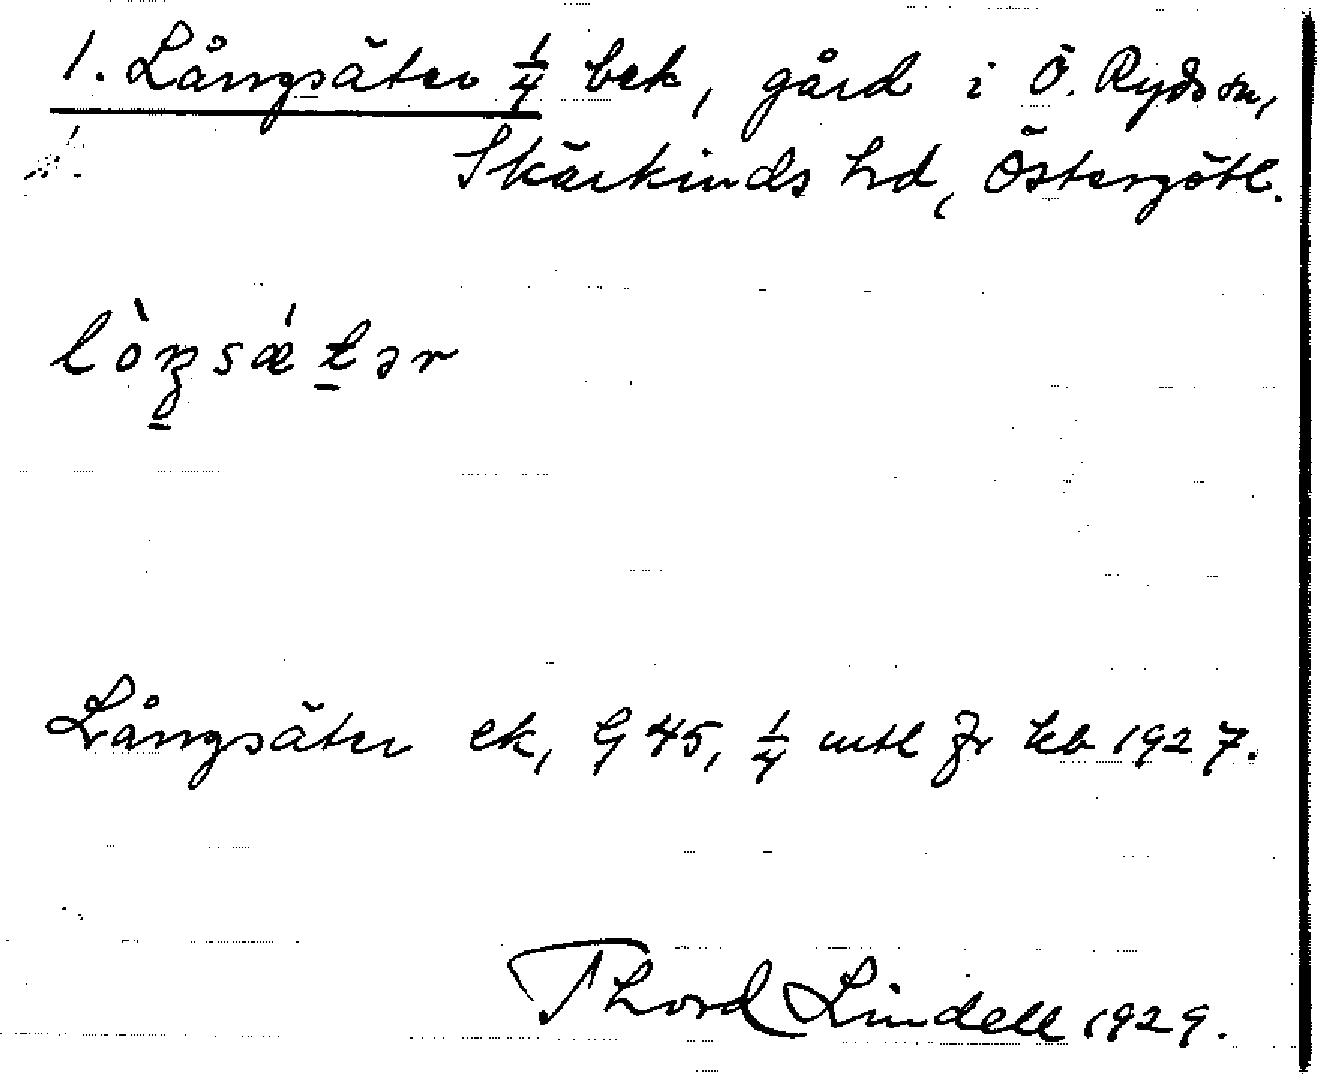 1. Långsäter 1/4 bek, gård i Ö. Ryds sn,
Skärkinds hd, Östergötl.
lòŋsǽtər
Långsäter ek, G 45, 1/4 mtl fr kb 1927.
Thord Lindell 1929.